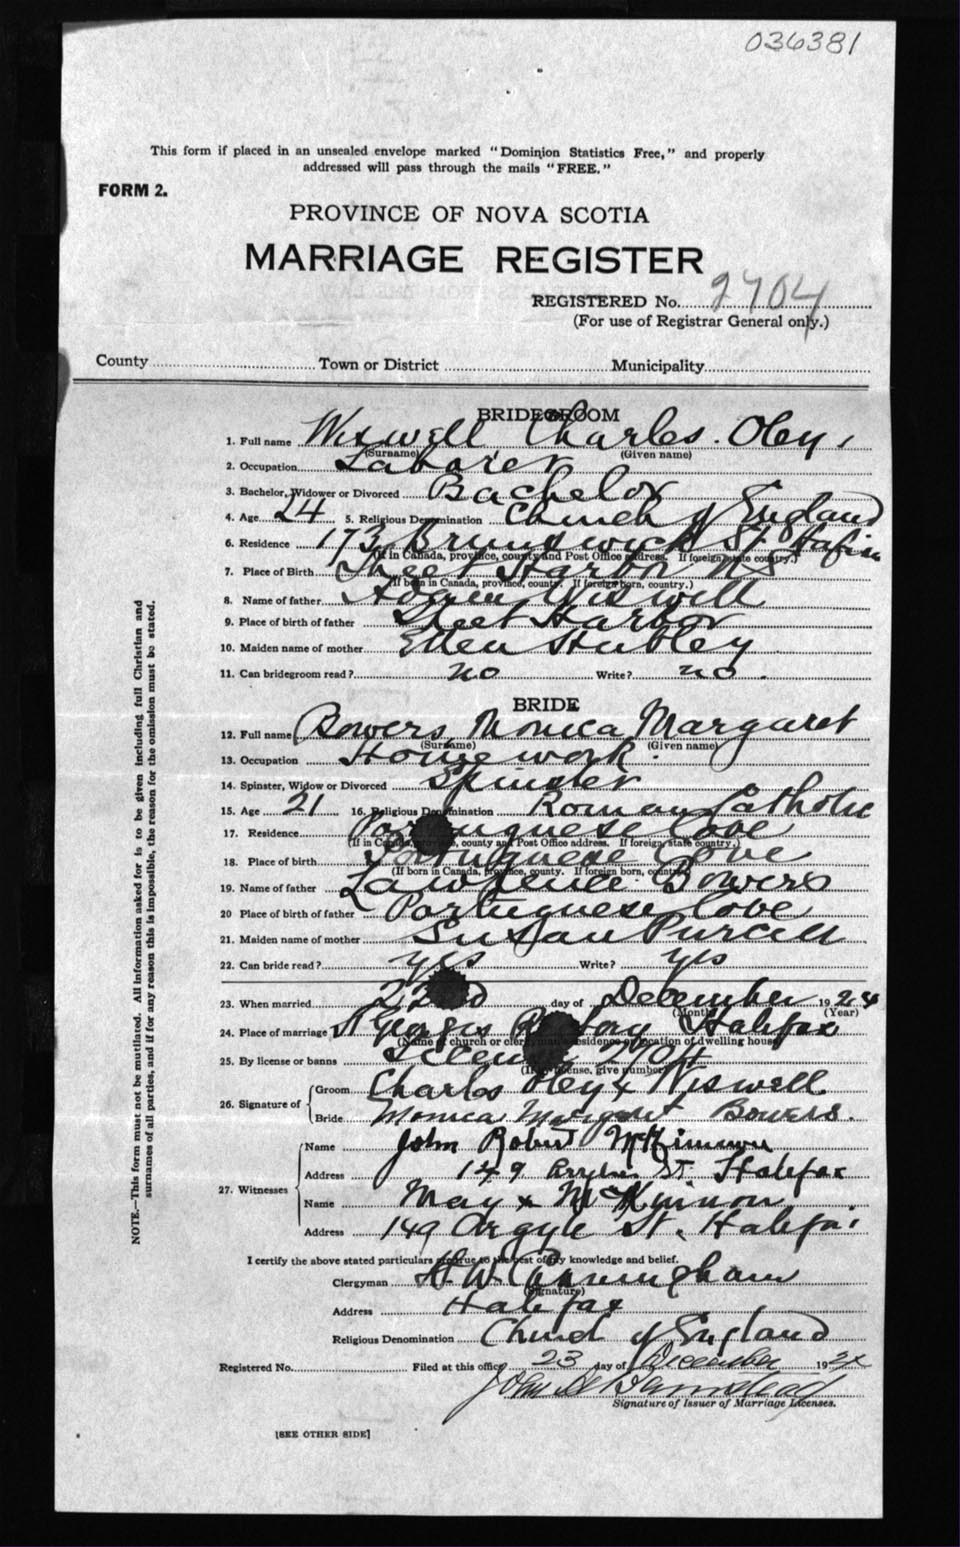 036381
This form if placed in an unsealed envelope marked "Dominion Statistics Free," and properly
addressed will pass through the mails "FREE."
FORM 2.
PROVINCE OF NOVA SCOTIA
MARRIAGE REGISTER
REGISTERED No. 2704
(For use of Registrar General only.)
County Town or District Municipality
BRIDEGROOM
1. Full name Wiswell Charles. Oley,
(Surname) (Given name)
2. Occupation Laborer
3. Bachelor, Widower or Divorced Bachelor
4. Age 24 5. Religious Denomination Church of England
6. Residence 173 Brunswick St.
(If in Canada, province, county and Post Office address. If foreign, state country.)
7. Place of Birth Sheet Harbor NS
(If born in Canada, province, county. If foreign born, country.)
8. Name of father Adam Wiswell
9. Place of birth of father Sheet Harbor
10. Maiden name of mother Ellen Hubley
11. Can bridegroom read? no Write? no.
BRIDE
12. Full name Bowers, Monica Margaret
(Surname) (Given name)
13. Occupation House work.
14. Spinster, Widow or Divorced Spinster
15. Age 21 16. Religious Denomination Roman Catholic
17. Residence Portuguese Cove
(If in Canada, province, county and Post Office address. If foreign, state country.)
18. Place of birth Portuguese Cove
(If born in Canada, province, county. If foreign born, country.)
19. Name of father Lawrence Bowers
20 Place of birth of father Portuguese Cove
21. Maiden name of mother Susan Purcell
22. Can bride read? yes Write? yes
23. When married 22nd day of December 1924
(Month) (Year)
24. Place of marriage St Georges Rectory Halifax
(Name of church or clergyman's residence or location of dwelling house)
25. By license or banns License 2704
(If by license, give number)
26. Signature of Groom Charles Oley x Wiswell
Bride Monica Margaret Bowers.
27. Witnesses Name John Robert McKinnon
Address 149 Argyle St. Halifax
Name May x McKinnon
Address 149 Argyle St. Halifax
I certify the above stated particulars are true to the best of my knowledge and belief.
Clergyman H. W. Cunningham
(Signature)
Address Halifax
Religious Denomination Church of England
Registered No. Filed at this office 23 day of December 1924
John
Signature of Issuer of Marriage Licenses.
[SEE OTHER SIDE]
NOTE.—This form must not be mutilated. All information asked for is to be given including full Christian and
surnames of all parties, and if for any reason this is impossible, the reason for the omission must be stated.